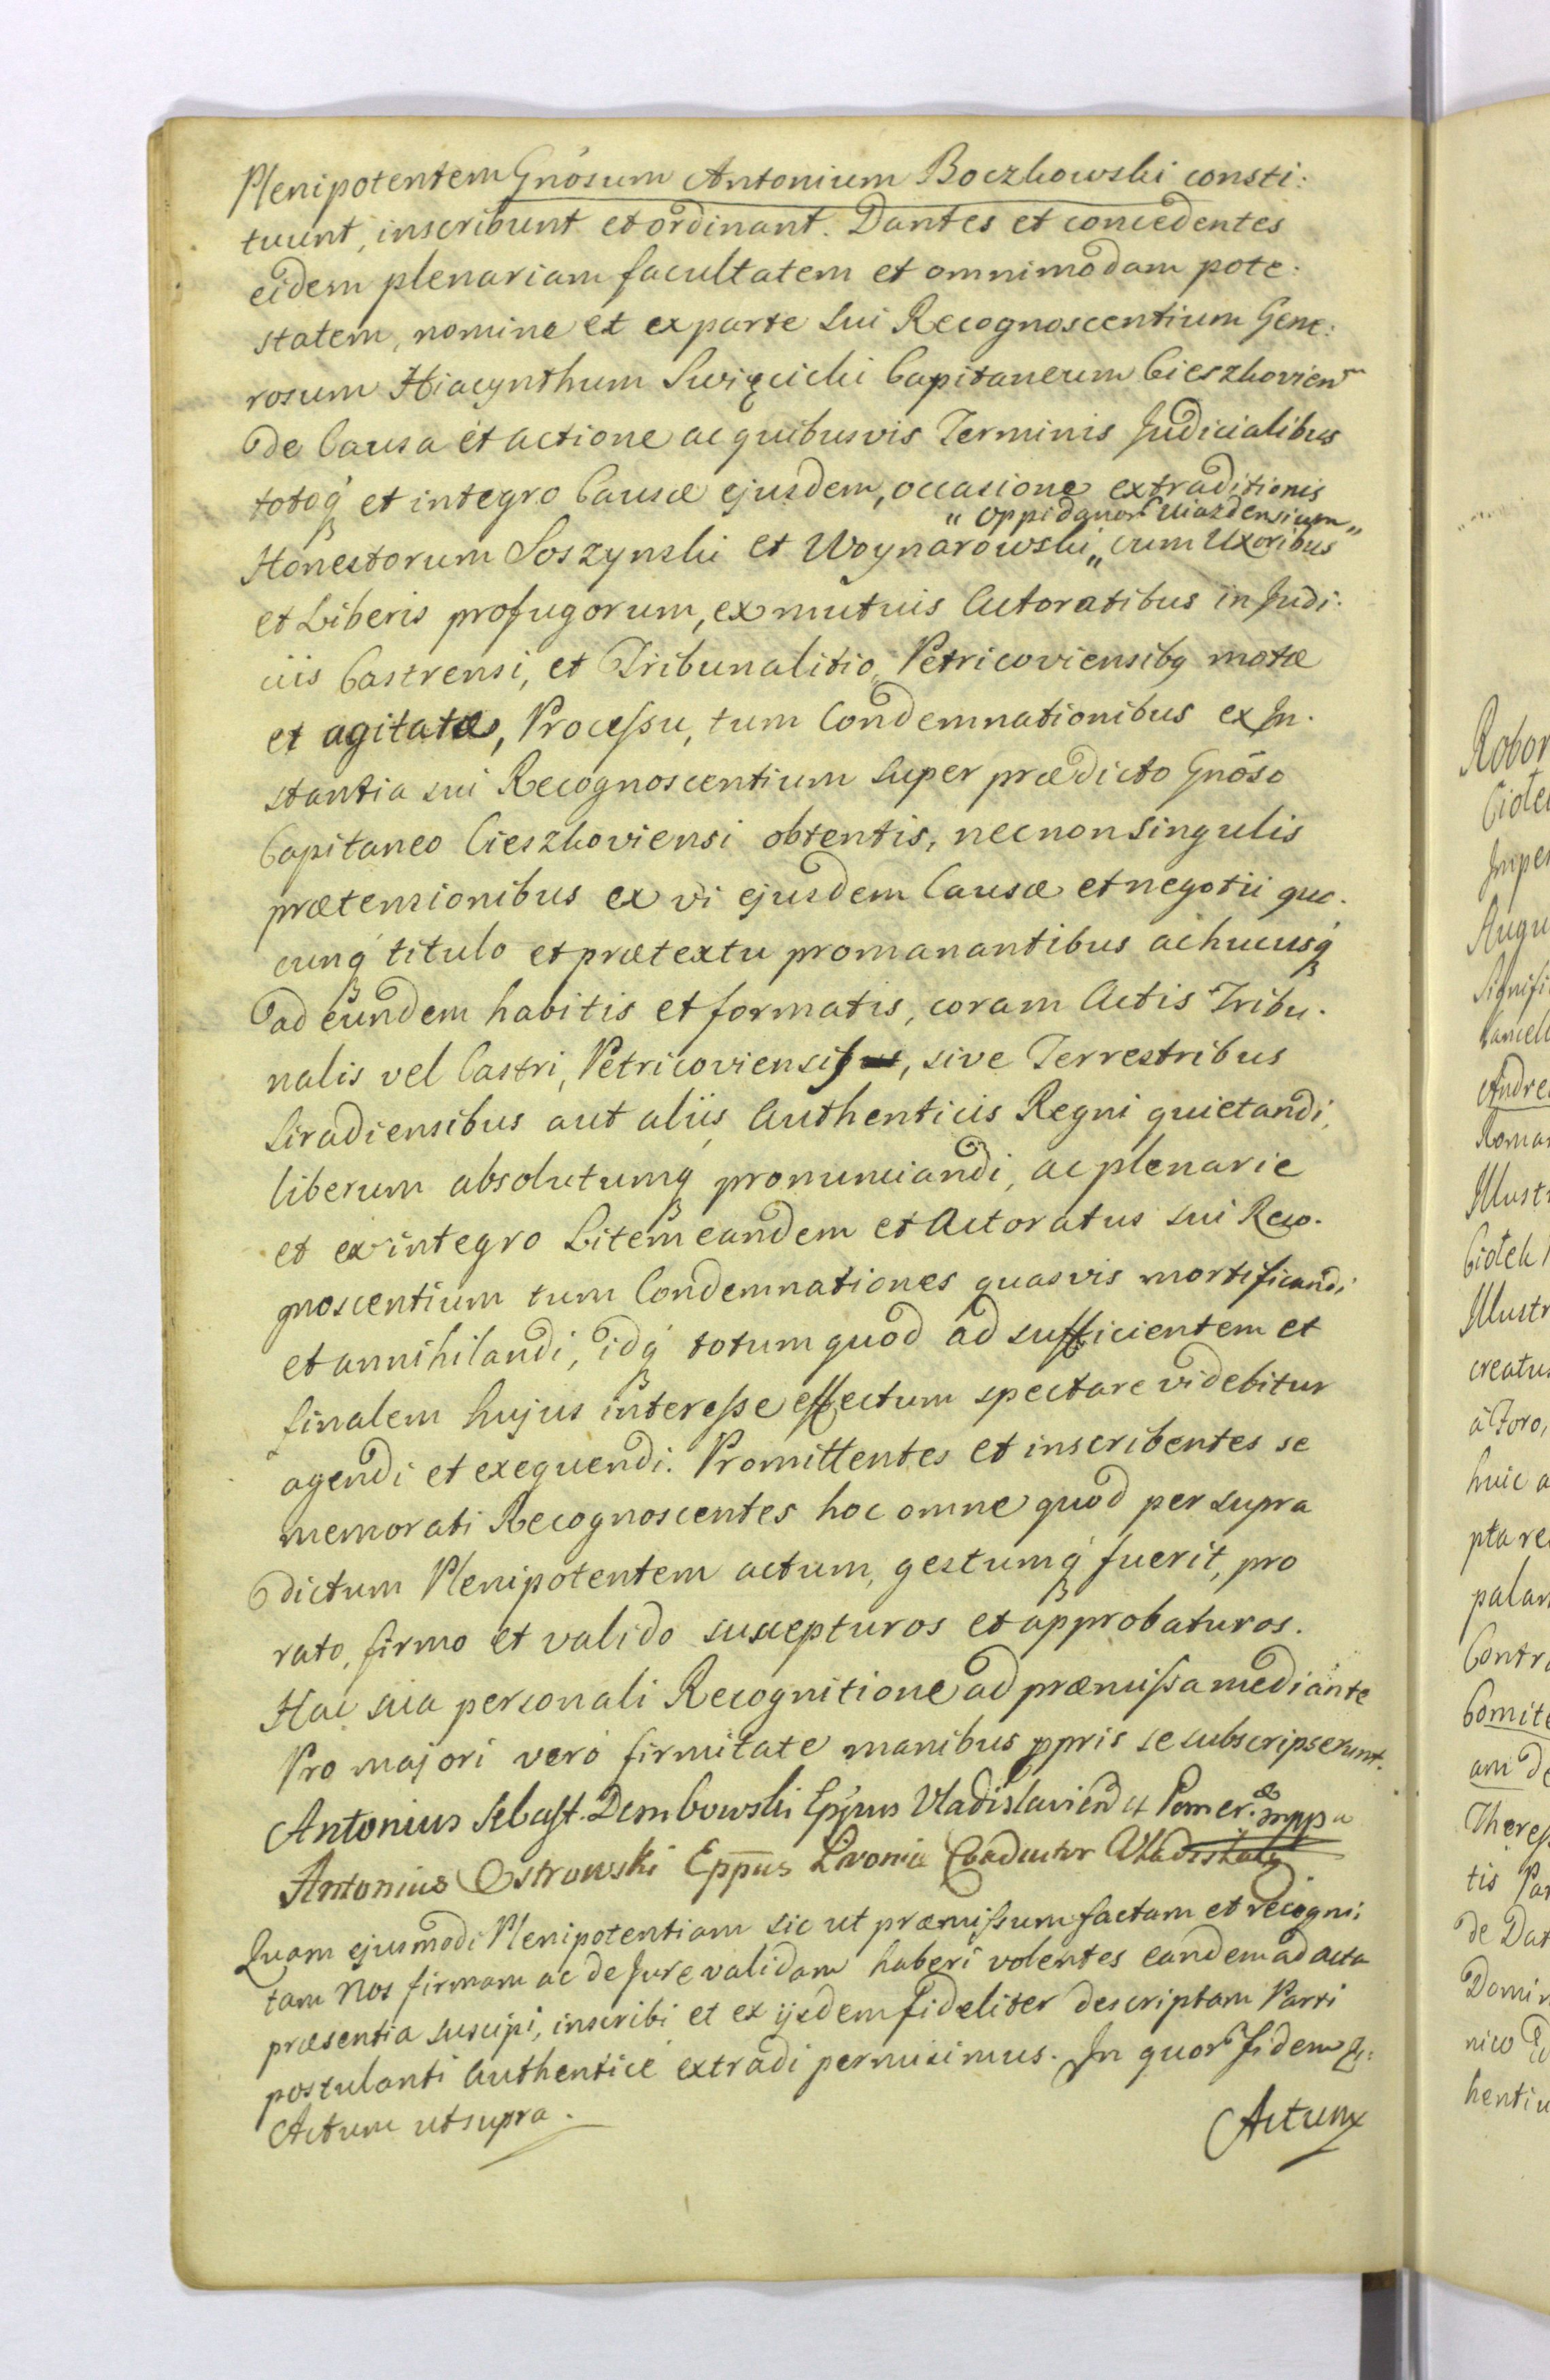 Plenipotentem Gnõsum Antonium Boczkowski consti:
tuunt, inscribunt et ordinant. Dantes et concedentes
eidem plenariam facultatem et omnimodam pote:
statem, nomine et ex parte sui Recognoscentium Gene:
rosum Hiacynthum Swięcicki Capitaneum Cieszkovien͠
de Causa et actione ac quibusvis Terminis Judicialibus
totoq́ꝫ et integro Causæ ejusdem, occasione extraditionis
" Oppidanor Uiazdensium "
Honestorum Soszynski et Woynarowski " cum Uxoribus
et Liberis profugorum, ex mutuis Actoratibus in Judi:
ciis Castrensi, et Tribunalitio, Petricoviensibꝗ motæ
et agitatæ, Processu, tum Condemnationibus ex In:
stantia sui Recognoscentium super prædicto Gnõso
Capitaneo Cieszkoviensi obtentis, nec non singulis
prætensionibus ex vi ejusdem Causæ et negotii quo:
cunq́ꝫ titulo et prætextu promanantibus ac hucusq́ꝫ
ad eundem habitis et formatis, coram Actis Tribu:
nalis vel Castri, Petricoviensis, sive Terrestribus
Siradiensibus aut aliis Authenticis Regni quietandi,
liberum absolutumq́ꝫ pronunciandi, ac plenarie
et ex integro Litem eandem et Actoratus sui Reco:
gnoscentium tum Condemnationes quasvis mortificandi
et annihilandi, idq́ꝫ totum quod ad sufficientem et
finalem hujus interesse effectum spectare videbitur
agendi et exequendi. Promittentes et inscribentes se
memorati Recognoscentes hoc omne quod per supra
dictum Plenipotentem actum, gestumq́ꝫ fuerit, pro
rato, firmo et valido suscepturos et approbaturos.
Hac sua personali Recognitione ad præmissa mediante
Pro majori vero firmitate manibus ppris se subscripserunt.
Antonius Sebast. Dembowski Eppus Vladislavien et Pomer. mppa
Antonius Ostrowski Eppus Livoniæ Coadiutor
Quam ejusmodi Plenipotentiam sic ut præmissum factam et recogni:
tam Nos firmam ac de Jure validam haberi volentes eandem ad acta
præsentia suscipi, inscribi et ex ijsdem fideliter descriptam Parti
postulanti authentice extradi permisimus. In quor fidem
Actum ut supra.
Actum
Robor
Imper
Augu
Signifi
Cancell
Andre
Roma
Illustr
Illustr
creatu
à Foro,
huic a
pta re
palam
Contr
Comite
am de
Theres
tis Par
de Dat
Domin
nico
hentiu